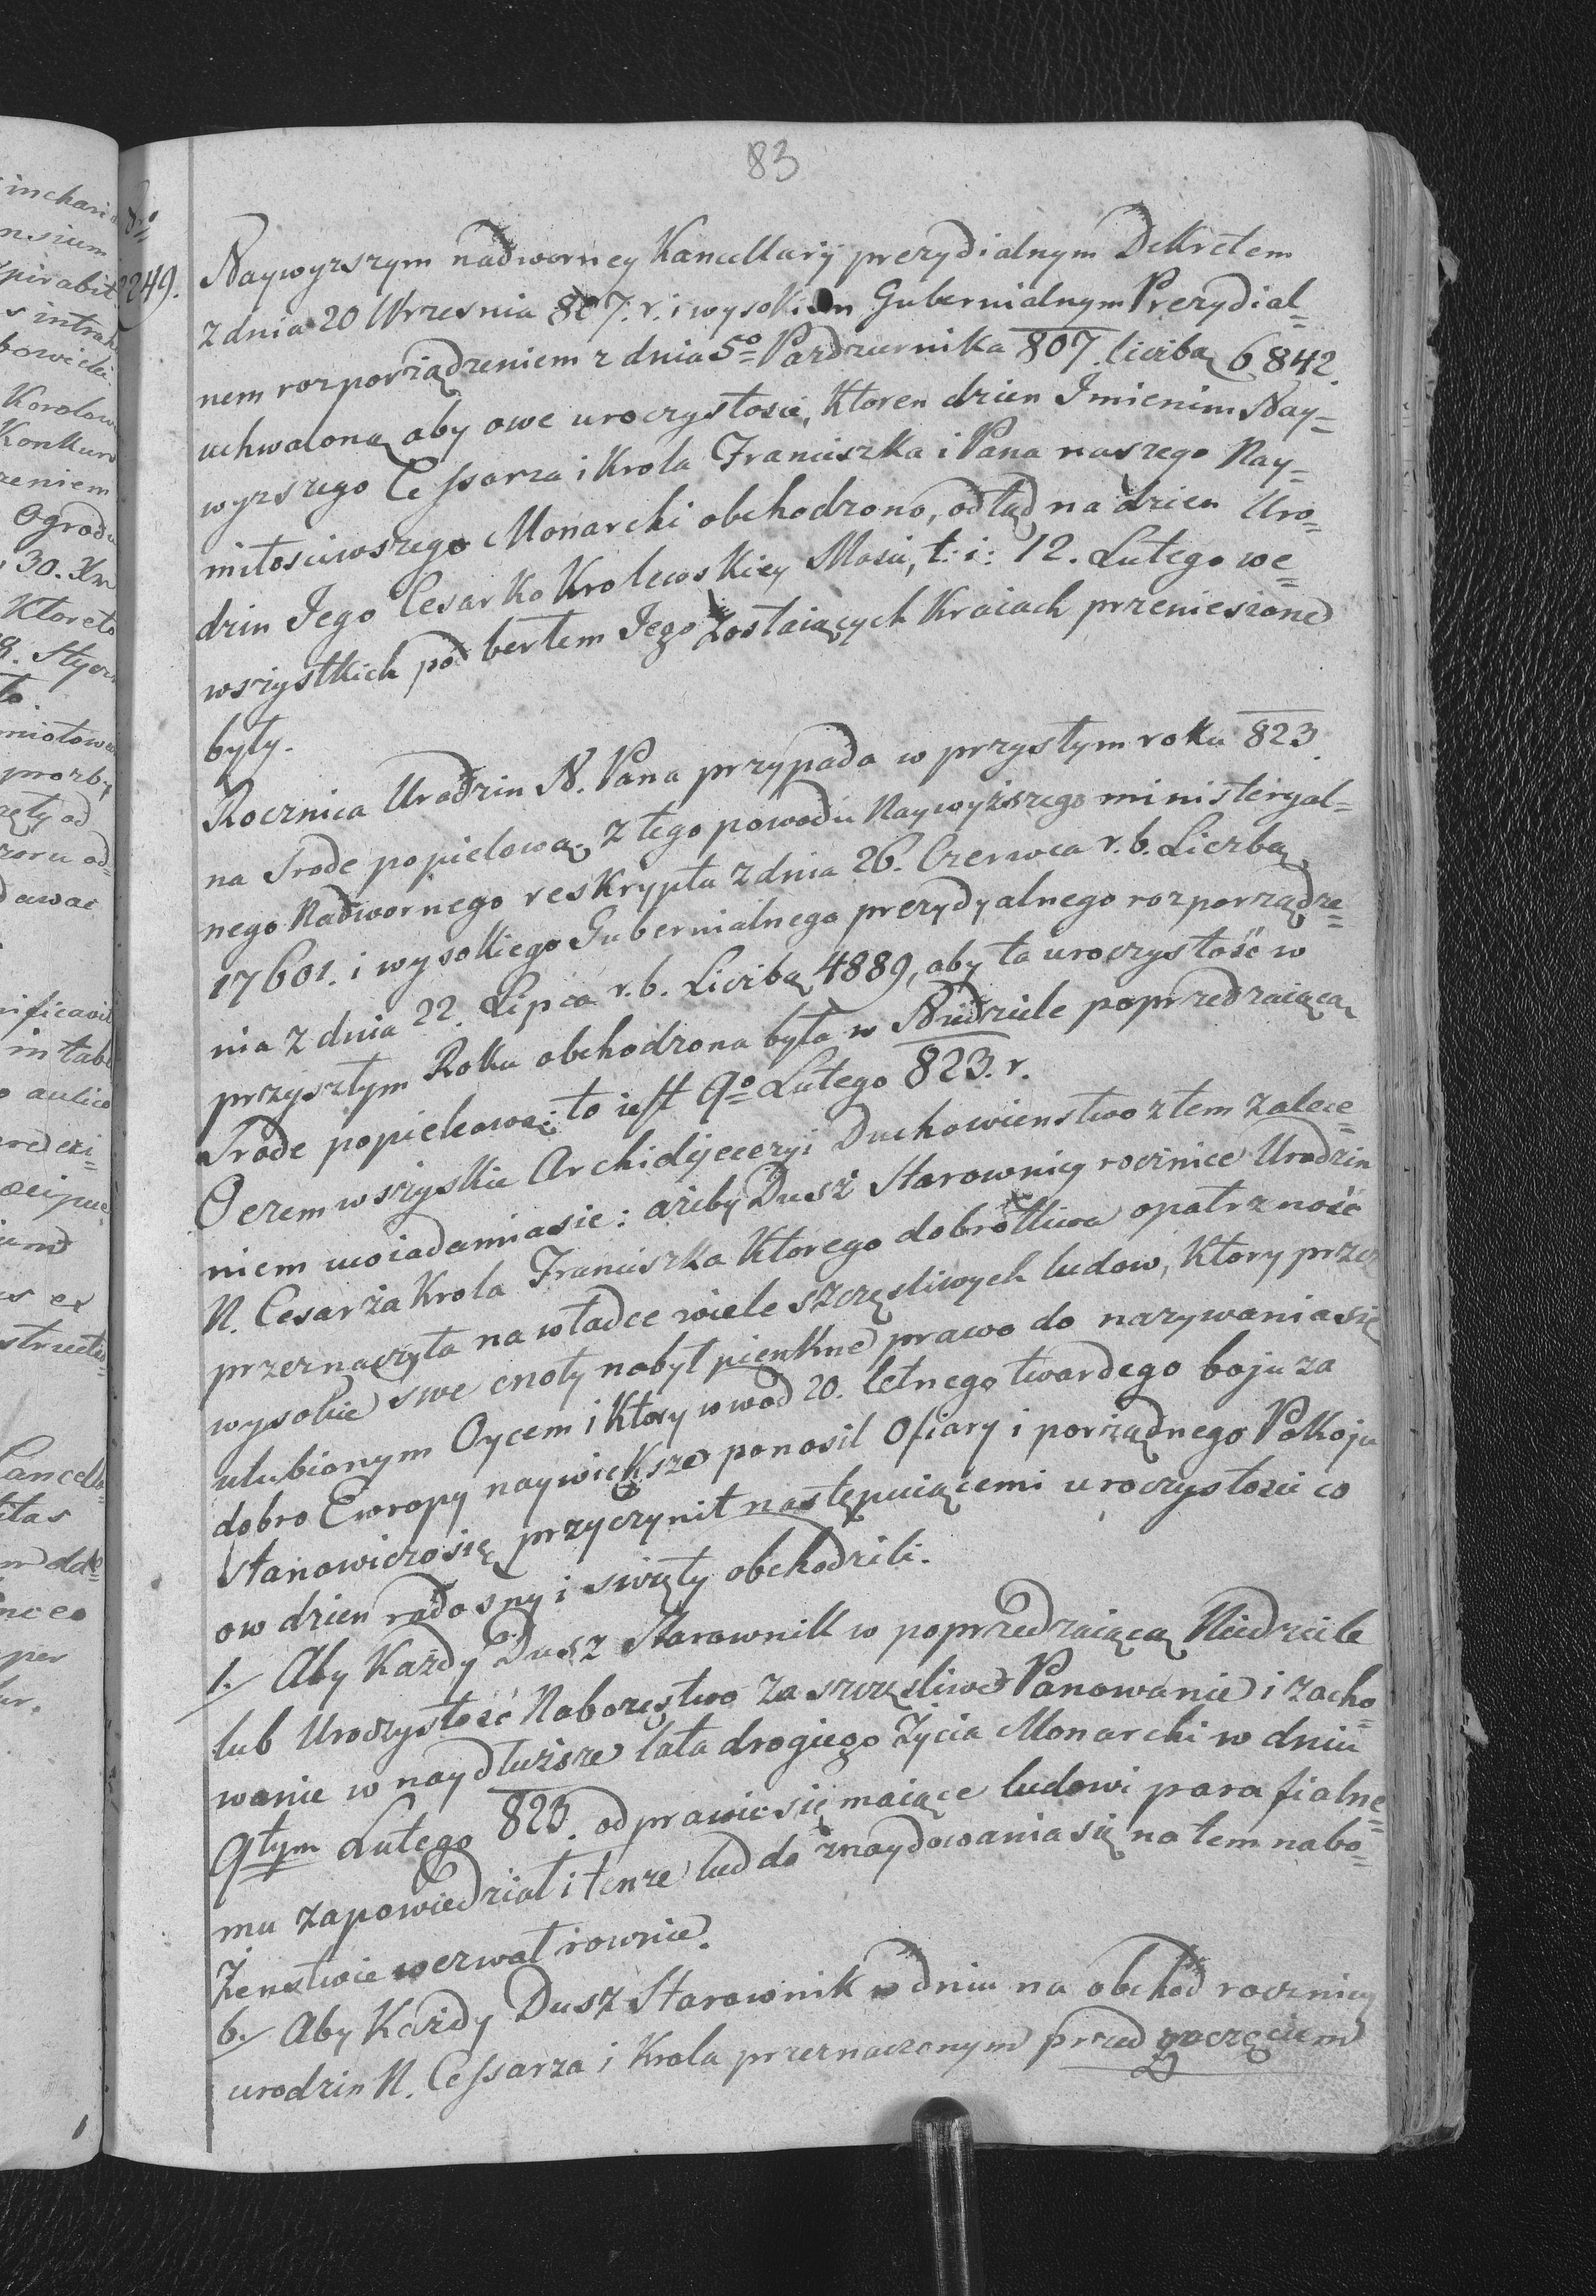 83
2249.
Naywyzszym nadworney Kancellaryi prezydialnym Dekretem
z dnia 20 Wrzesnia 807. r. i wysokim Gubernialnym Prezydial=
nem rozporządzeniem z dnia 5o Pazdziernika 807. liczbą 6842.
uchwaloną aby owe uroczystosci, Ktoren dzien Imienim Nay=
wyzszego Cessarza i Krola Franciszka i Pana naszego Nay=
miłosciwszego Monarchi obchodzono, odtąd na dzien Uro=
dzin Jego Cesarko Krolewskiey Mosci, t: i: 12. Lutego we=
wszystkich pod bertem Jego Zostaiących Kraiach przeniesione
były.
Rocznica Urodzin N. Pana przypada w przysłym roku 823.
na Srode popielową, z tego powodu Naywyższego ministeryal=
nego Nadwornego reskryptu z dnia 26. Czerwca r. b. Liczbą
17601. i wysokiego Gubernialnego prezydyalnego rozporządze=
nia z dnia 22. Lipca r. b. Liczbą 4889, aby ta uroczystość w
przyszłym Roku obchodzona była w Niedziele poprzedzaiącą
Srode popielcową to iest 9o Lutego 823. r.
O czem wszyskie Archidyecezyi Duchowienstwo z tem zalece=
niem uwiadamia sie: ażeby Dusz Starownicy rocznice Urodzin
N. Cesarża Krola Franciszka Ktorego dobrotliwa opatrzność
przeznaczyła na władce wiele szczęsliwych ludow, Ktory przez
wysokie swe cnoty nabył pienkne prawo do nazywania się
ulubionym Oycem i Ktory wwod 20. letnego twardego boju za
dobro Ewropy naywiększe ponosil Ofiary i porządnego Pokoju
Stanowiczosię przyczynił następuiącemi uroczystosci co
ow dzien radosny i swięty obchodzili.
1./ Aby Każdy Dusz Starownik w poprzedzaiącą Niedziele
lub Uroczystość Nabozęstwo za szczęsliwe Panowanie i zacho=
wanie w naydłuższe lata drogiego Życia Monarchi w dniu
9tym Lutego 823. odprawic się maiące ludowi parafialne=
mu zapowiedział i tenze lud do znaydowania się na tem nabo=
żenstwie wezwał rownie.
b./ Aby Każdy Dusz Starownik w dniu na obchod rocznicy
urodzin N. Cessarza i Krola przeznaczonym przed zaczęciem